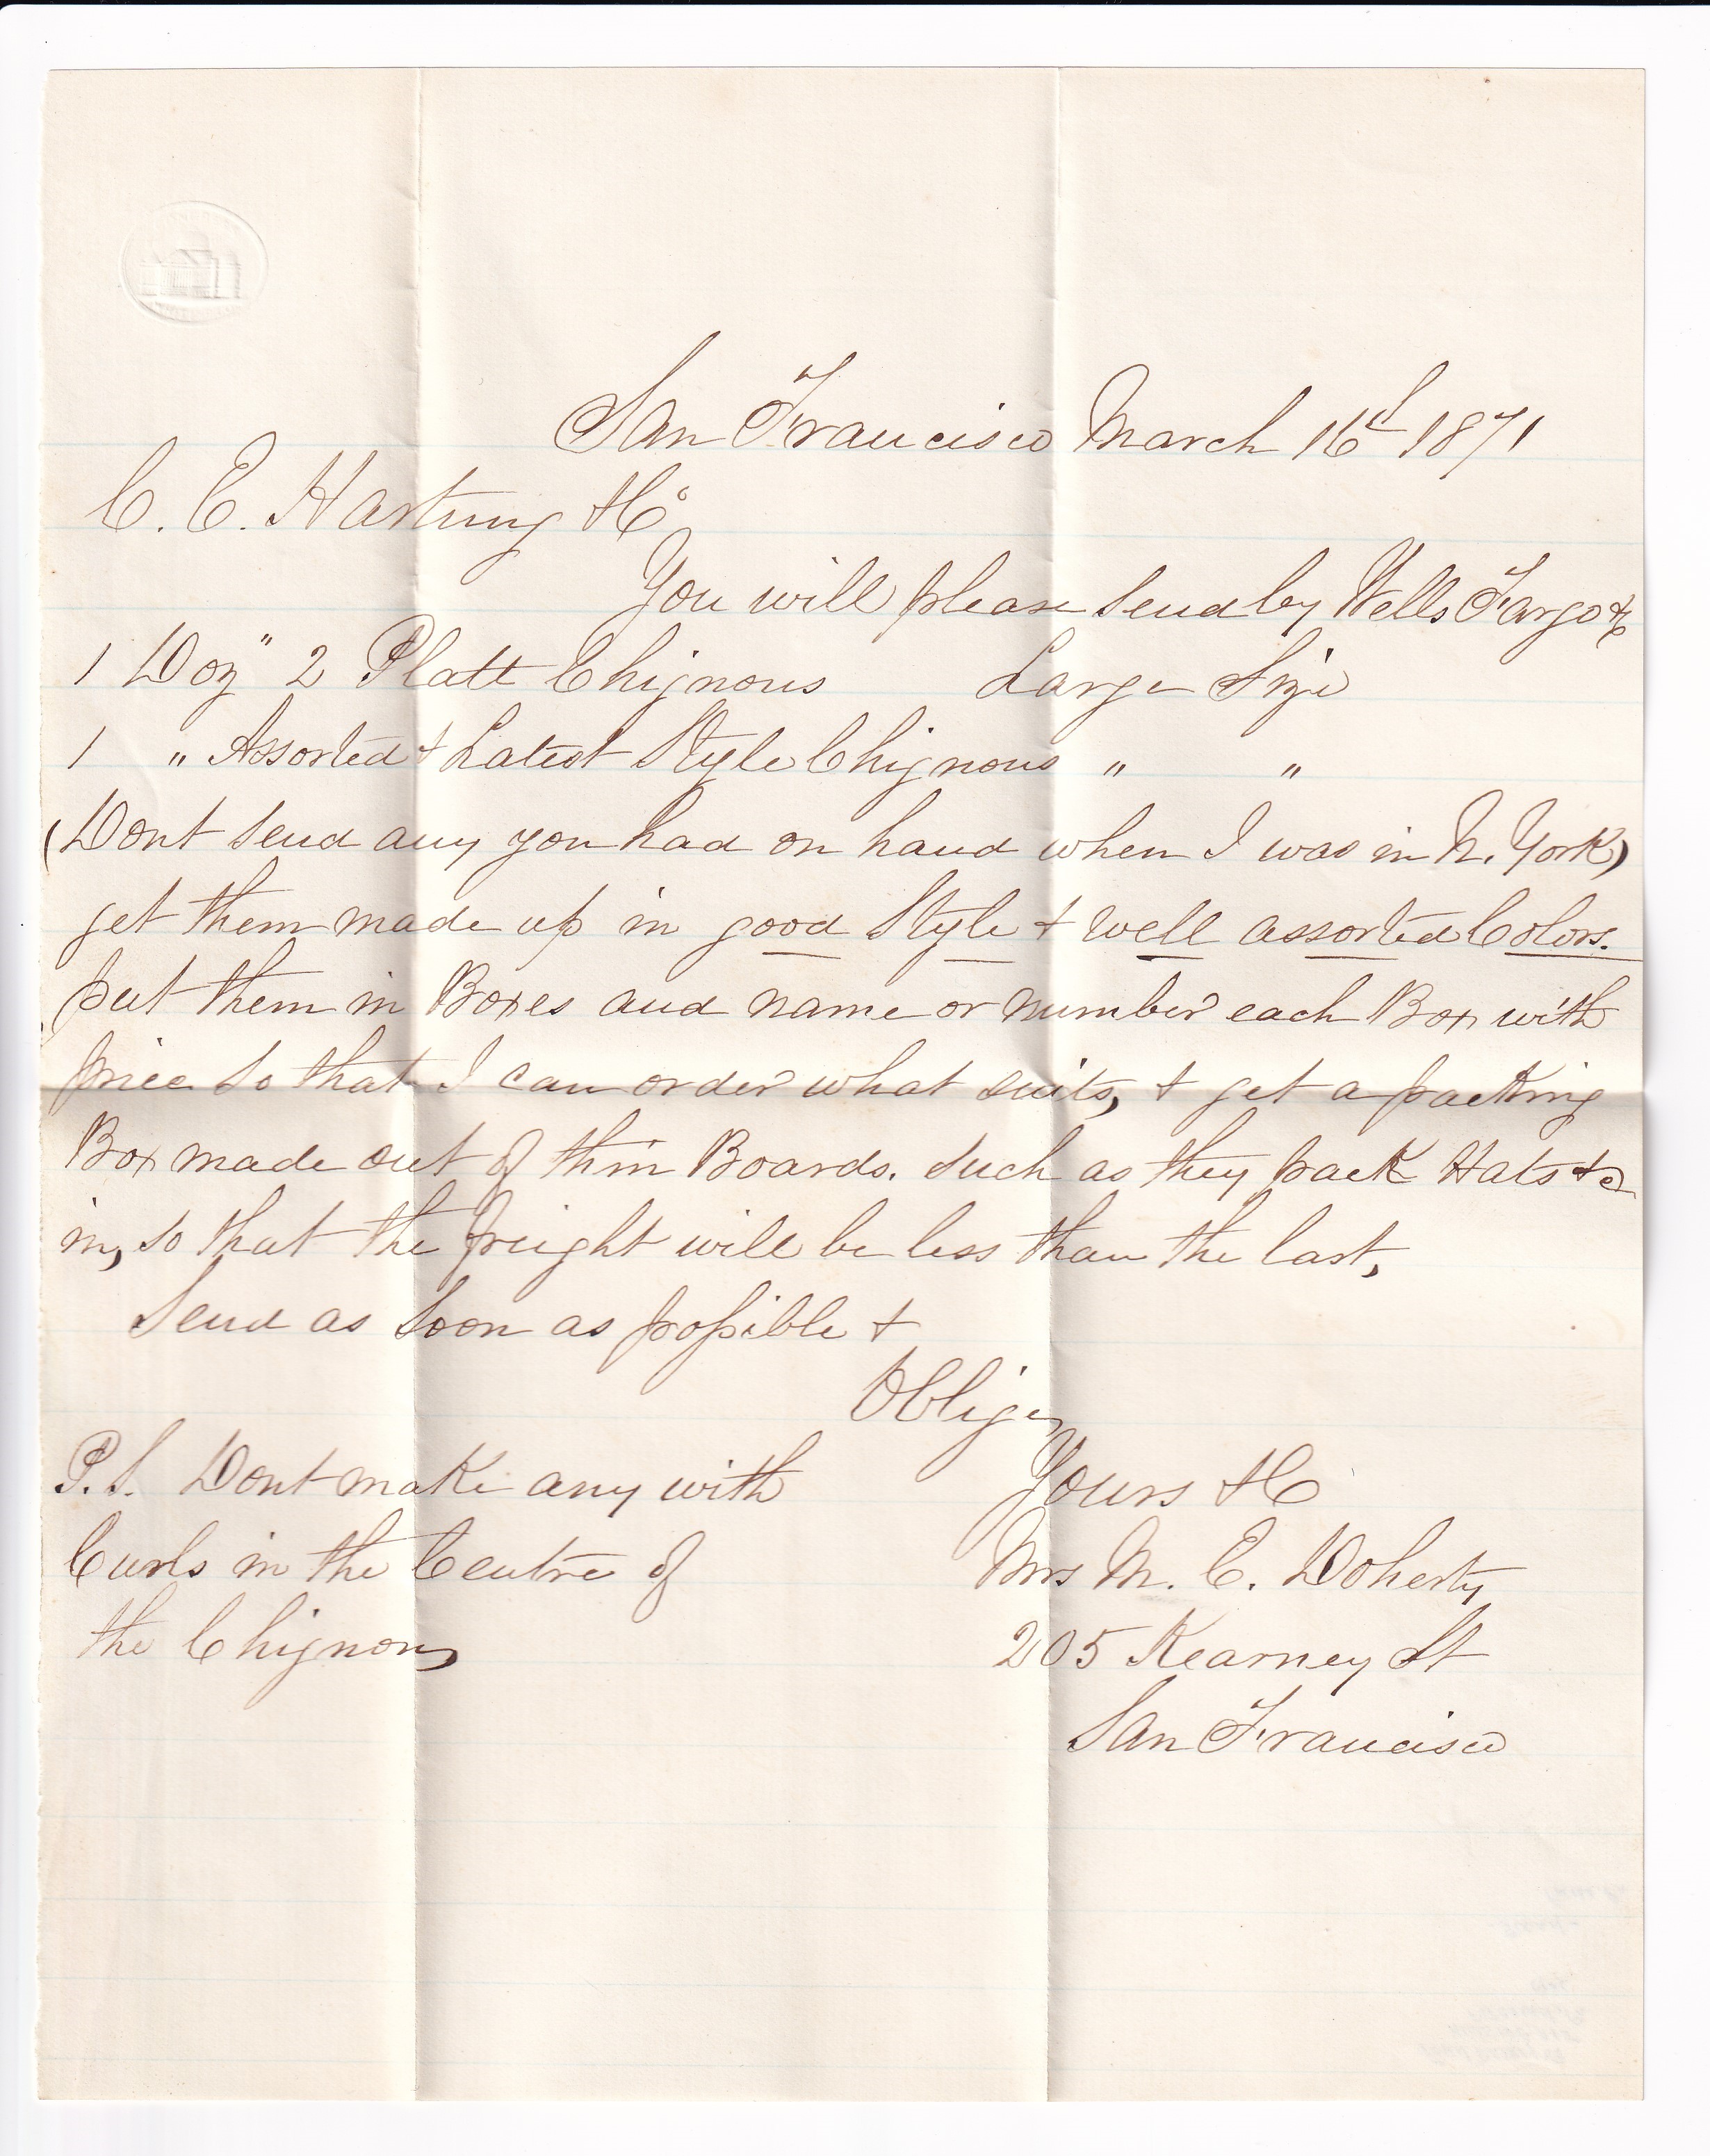 San Francisco March 16th 1871
C. E. Hartung & Co
You will please send by Wells Fargo & Co
1 Doz " 2 Platt Chignons Large Size
1 " Assorted & Latest Style Chignons " "
(Dont send any you had on hand when I was in N. York)
get them made up in good Style & well assorted Colors.
put them in Boxes and name or number each Box with
price so that I can order what suits, & get a packing
Box made out of thin Boards. such as they pack Hats &c
in, so that the freight will be less than the last,
Send as soon as possible &
Oblige
Yours &C
Mrs M. C. Doherty
205 Kearney St
San Francisco
P.S. Dont make any with
Curls in the Centre of
the Chignons